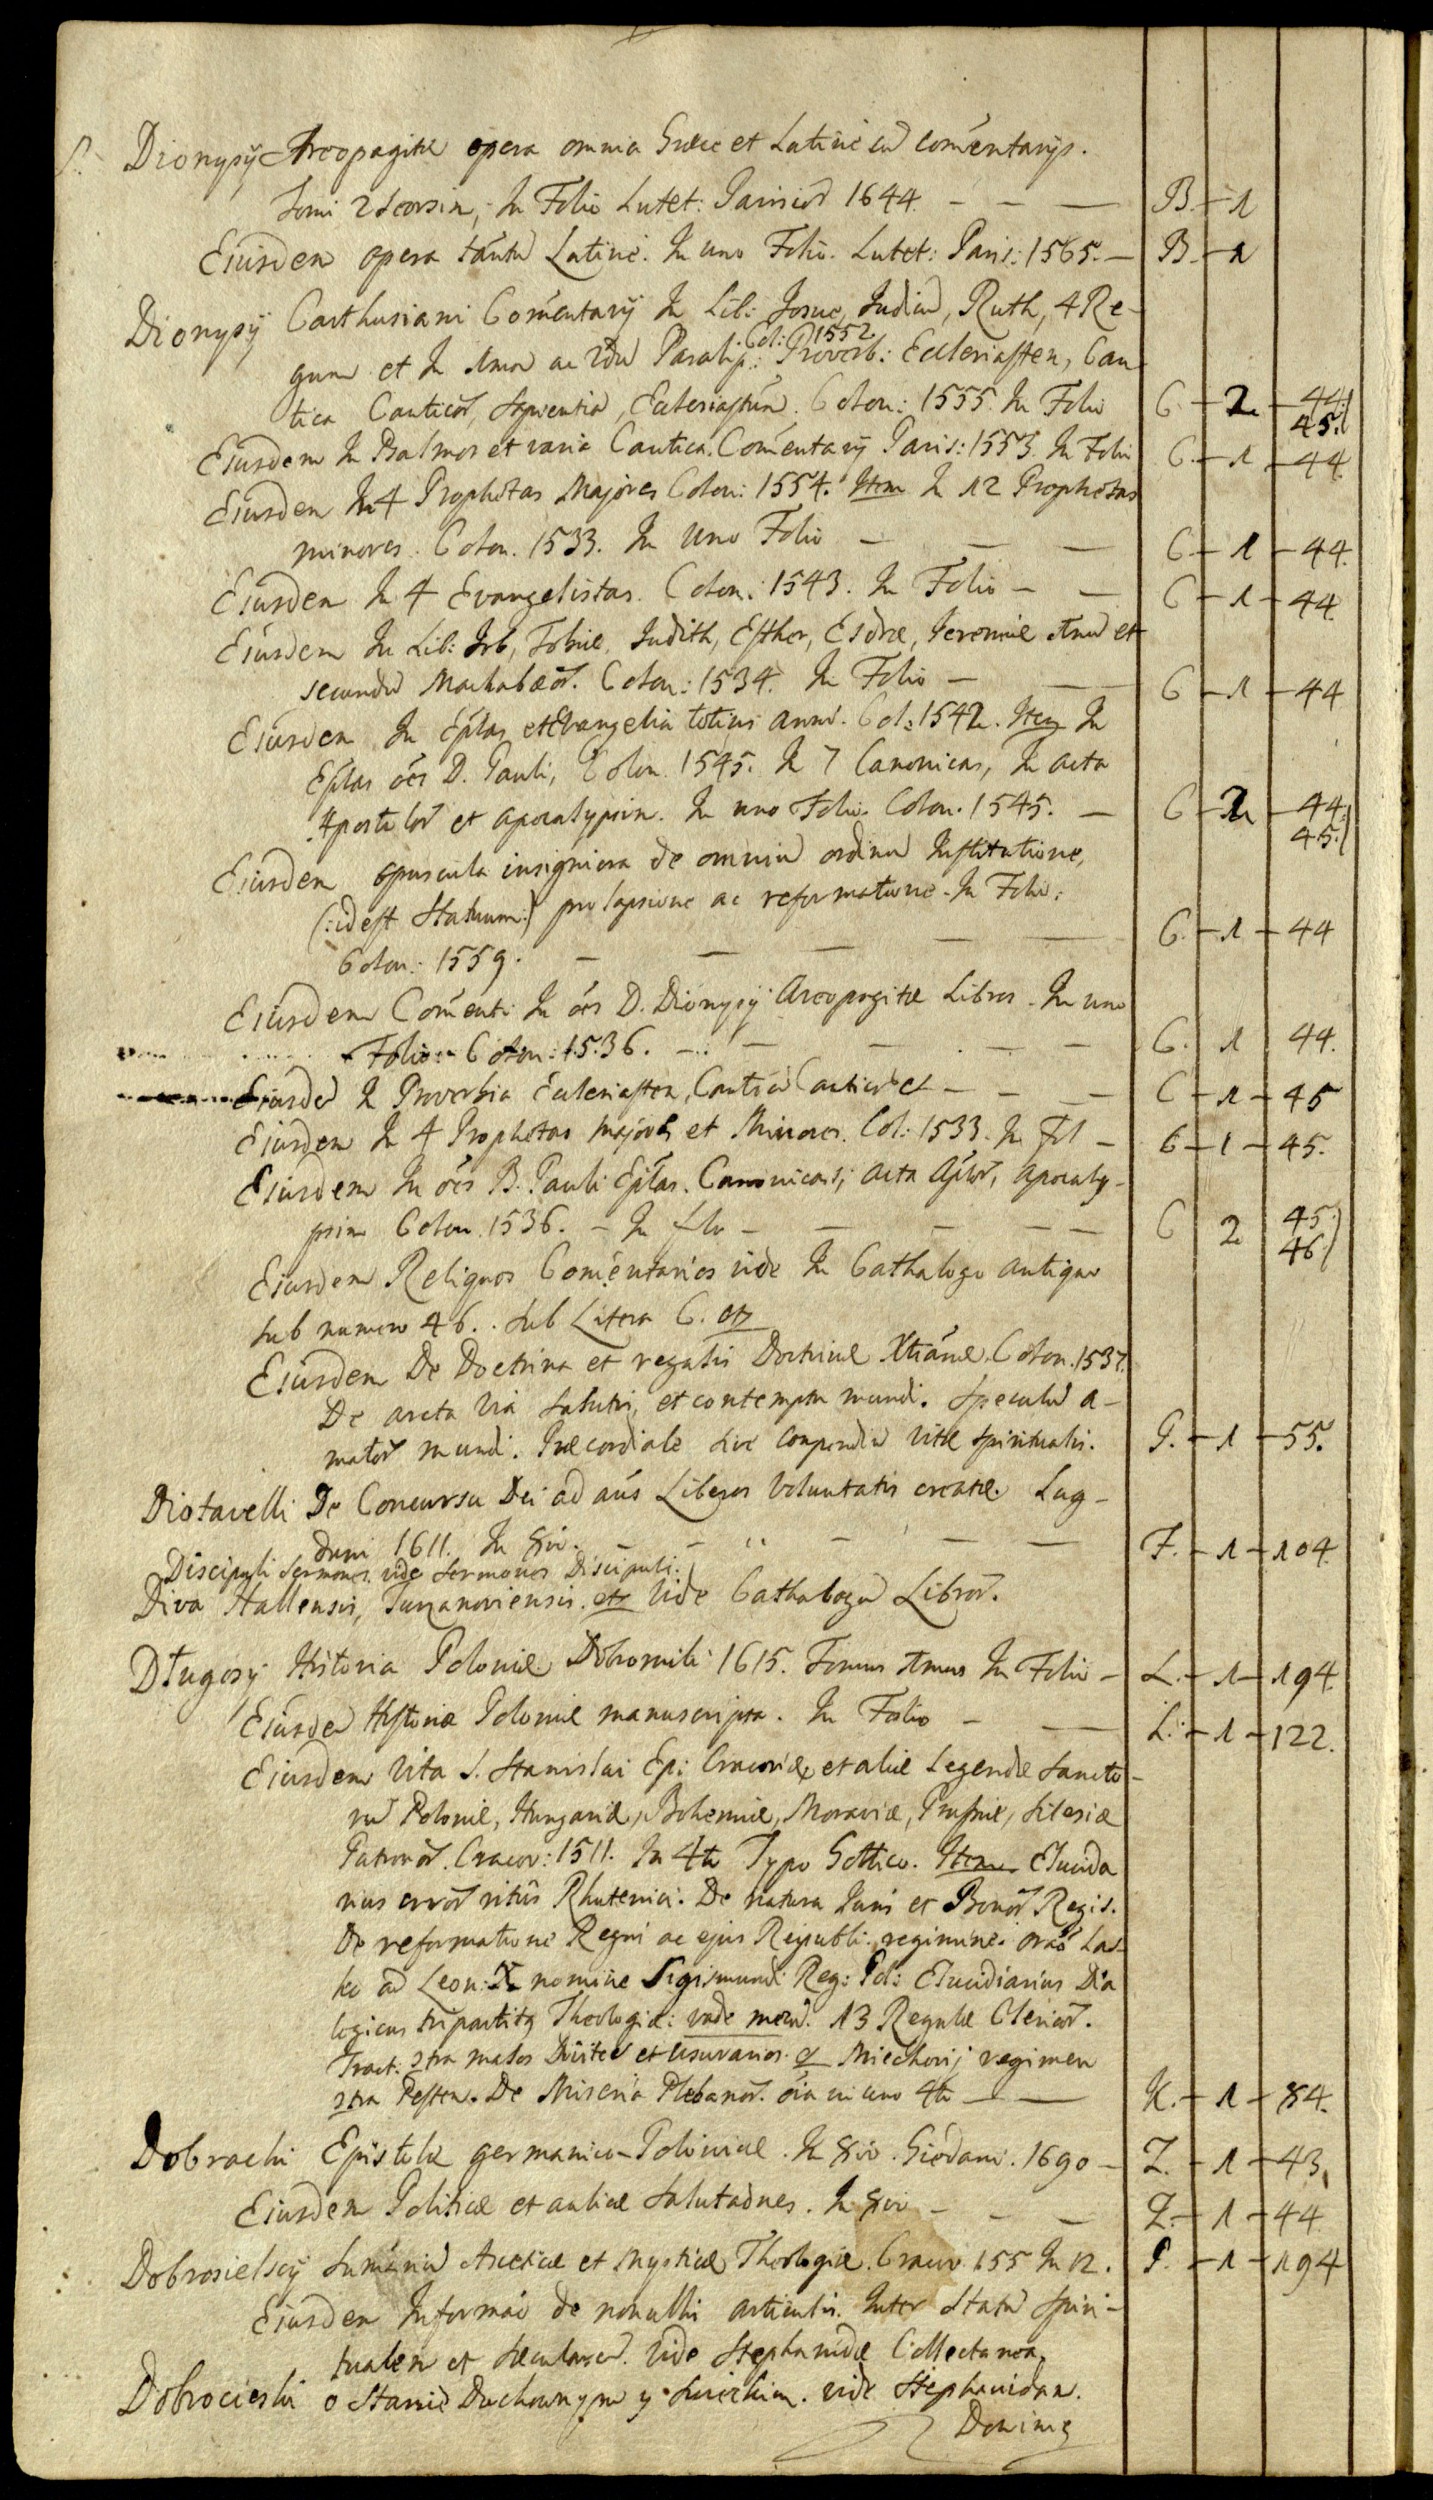 S. Dionysij Areopagitæ opera omnia Græce et Latinè cū comentarijs.
Tomi 2 seorsin, In Folio Lutet: Parisior 1644 — — — B. — 1
Eiusdem opera tantū Latinè. In uno Folio. Lutet: Paris: 1565. — B. — 1
Dionysij Carthusiani Comentarij In Lib: Josue, Judicū, Ruth, 4 Re-
Col: 1552.
gum et In 1mū ac 2dū Paralip: Proverb: Ecclesiasten, Can
tica Canticor, Sapientiā, Ecclesiasticū. Colon: 1555. In Folio C. — 2 — 44.
45.
Eiusdem In Psalmos et varia Cantica. Comentarij Paris: 1553. In Folio C. — 1 — 44
Eiusdem In 4 Prophetas Majores Colon: 1554. Item In 12 Prophetas
minores. Colon. 1533. In uno Folio — — — C. — 1 — 44.
Eiusdem In 4 Evangelistas. Colon: 1543. In Folio — — C — 1 — 44.
Eiusdem In Lib: Job, Tobiæ, Judith, Esther, Esdræ, Jeremiæ 1mū et
secundū Machabæor. Colon: 1534. In Folio — — C — 1 — 44
Eiusdem In Eplas et Evangelia totius anni. Col: 1542. Item In
Eplas oes D. Pauli, Colon. 1545. In 7 Canonicas, In acta
Apostolor et apocalypsin. In uno Folio. Colon. 1545. — C — 2 — 44.
45.
Eiusdem opuscula insigniora de omniū ordinū Institutione,
(: id est Statuum :) prolapsione ac reformatione. In Folio.
Colon: 1559. — — — — — C. — 1 — 44
Eiusdem Coment: In oes D. Dionysij Areopagitæ Libros. In uno
Folio. Colon: 1536. — — — — — C. 1 44.
Eiusdē In Proverbia Ecclesiasten, Cantica Canticor et — — — C — 1 — 45
Eiusdem In 4 Prophetas majores et Minores. Col: 1533. In Fol — C — 1 — 45.
Eiusdem In oes B. Pauli Eplas. Canonicas, acta Aplor, apocaly-
psim Colon. 1536. — In flo — — — — — C 2 45.
46.
Eiusdem Reliquos Comentarios vide In Cathalogo antiquo
sub numero 46. sub Litera C. etz
Eiusdem De Doctrina et regulis Doctrinæ Xtianæ. Colon. 1537.
De arcta via salutis, et contemptu mundi. Speculū a-
mator mundi. Præcordiale sive compendiū vitæ spiritualis. G. — 1 — 55.
Diotavelli De Concursu Dei ad aūs Liberos voluntatis creatæ. Lug-
duni 1611. In 8vo. — — — — — F. — 1 — 104.
Discipuli Sermones vide Sermones Discipuli.
Diva Hallensis, Turzanoviensis. etz Vide Cathalogū Libror.
Długosij Historia Poloniæ Dobromili 1615. Tomus 1mus In Folio — L. — 1 — 194.
Eiusdē Historia Poloniæ manuscripta. In Folio — — L: — 1 — 122.
Eiusdem Vita S. Stanislai Epi Cracoviæ, et aliæ Legendæ sancto-
rū Poloniæ, Hungariæ, Bohemiæ, Moraviæ, Prussiæ, Silesiæ
Patronor. Cracov: 1511. In 4to Typo Gottico. Item Elucida
rius error ritûs Rhutenici. De natura Juris et Bonor Regis.
De reformatione Regni ac ejus Reipubli. regimine. orao Las-
ko ad Leon: X nomine Sigismundi Reg: Pol: Elucidiarius Dia
logicus tripartitq Theologiæ: vade mecū. 13 Regulæ Clericor.
Tract: 9tra malos Divites et usurarios. et Miechovij regimen
9tra Pestem. De Miseria Plebanor. oia in uno 4to — — K. — 1 — 84.
Dobracki Epistolæ germanico-Polonicæ. In 8vo. Giedani. 1690 — Z. — 1 — 43.
Eiusdem Politicæ et aulicæ Salutaones. In 8vo — — — Z. — 1 — 44
Dobrosielscij Sumariū Asceticæ et Mysticæ Theologiæ. Cracov 155 In 12. P. — 1 — 194
Eiusdem Informao de nonullis articulis. Inter Statū Spiri-
tualem et sæcularem. Vide Stephanidæ Collectanea.
Dobrocieski o Stanie Duchownym y Swieckim. vide Stephanidam.
Doming